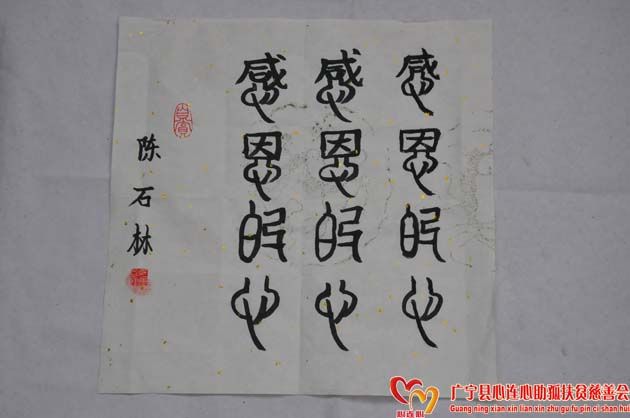 感恩的心
感恩的心
感恩的心
陈石林
心连心
广宁县心连心助孤扶贫慈善会
Guang ning xian xin lian xin zhu gu fu pin ci shan hui